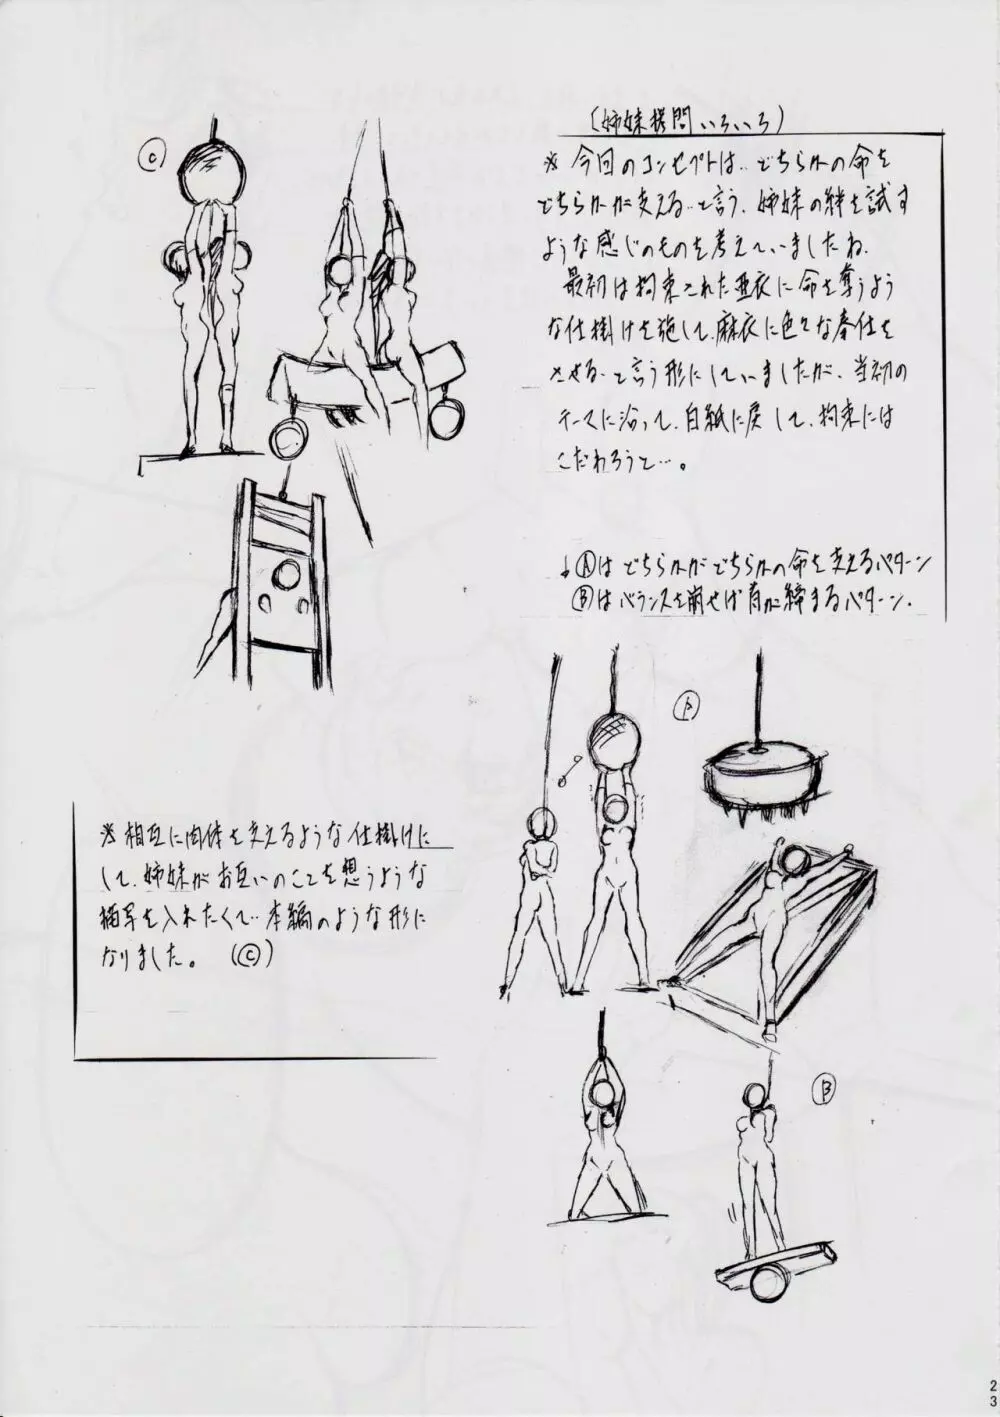 (姉妹拷問いろいろ)
※今回のコンセプトは‥どちらかの命を
どちらかが支える‥と言う、姉妹の絆を試す
ような感じのものを考えていましたね。
最初は拘束された亜衣に命を奪うよう
な仕掛けを施して、麻衣に色々な奉仕を
させる‥と言う形にしていましたが、当初の
テーマに沿って、白紙に戻して、拘束には
こだわろうと…。
↓Ⓐはどちらかがどちらかの命を支えるパターン
Ⓑはバランスを崩せば首が締まるパターン.
※相互に肉体を支えるような仕掛けに
して、姉妹がお互いのことを想うような
描写を入れたくて‥本編のような形に
なりました。 (Ⓒ)
Ⓒ
Ⓐ
Ⓑ
23